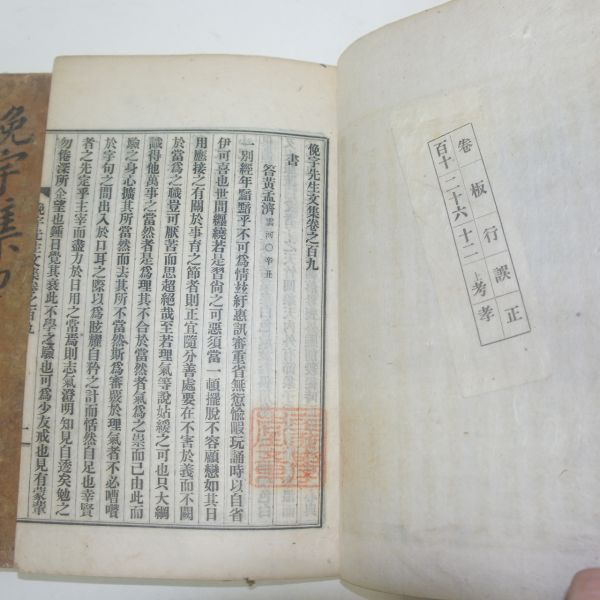 卷 板 行 誤 正
百十 二十六 十二 考 孝
上
俛宇先生文集卷之百九
書
答黃孟濟 雲河○辛丑
一別經年黯黯乎不可爲情玆紆惠訊審重省無愆愉暇玩誦時以自省
伊可喜也世間纏繞若是習尙之可惡須當一頓擺脫不容顧戀如其日
用應接之有關於事育之節者則正宜隨分善處要在不害於義而不闕
於當爲之職豈可厭苦而思超絶哉至若理氣等說姑緩之可也只大綱
識得他萬事之當然者是爲理其不合於當然者氣爲之祟而已由此而
驗之身心擴其所當然而去其所不當然斯爲審嚴於理氣者不必嘈囋
於字句之間出入於口耳之際以爲眩耀自矜之計而恬然自足也幸賢
者之先定乎主宰而盡力於日用之常焉則志氣澄明知見自透矣勉之
勿倦深所企望也鍾日覺其衰此不學之驗也可爲少友戒也見有蒙輩
俛宇先生文集卷之百九
一
俛宇集